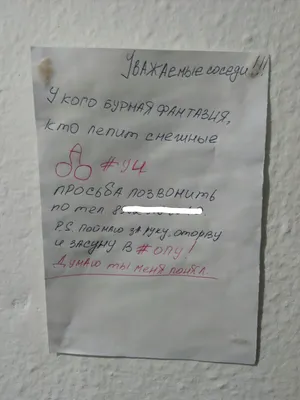 Уважаемые соседи!!!
У кого бурная фантазия,
кто лепит снежные
#ЯЧ
просьба позвонить
по тел 8
P.S. поймаю за руку, оторву
и засуну в #опу!
Думаю ты меня понял.